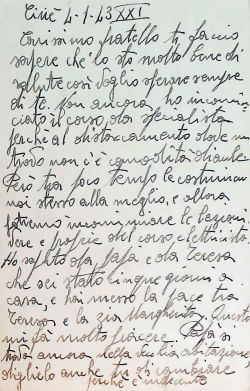 Ciriè 4-1-43 XXI
Carissimo fratello ti faccio
sapere che io sto molto bene di
salute così voglio sperare sempre
di te. Non ancora ho incomin
ciato il corso da specialista
perchè al distaccamento dove mi
trovo non c'è comodità di aule
Però tra poco tempo le costruiran
noi stesso alla meglio, e allora
potremo incominciare le lezioni
vere e proprie del corso elettricista
Ho saputo da papà e da Teresa
che sei stato cinque giorni a
casa, e hai messo la pace tra
Teresa e la zia Margherita. Questo
mi fa molto piacere. Papà si
della abitazione
diglielo anche tu di cambiare
perchè è indecente